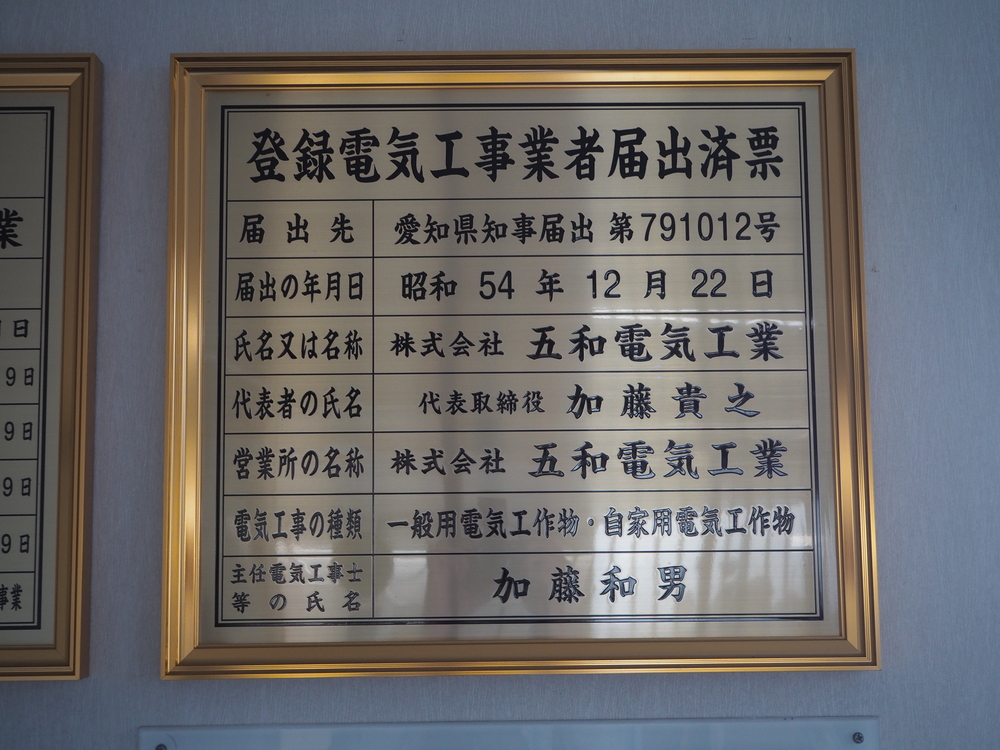 業
日
9日
9日
9日
9日
事業
登録電気工事業者届出済票
届出先 愛知県知事届出 第791012号
届出の年月日 昭和 54 年 12 月 22 日
氏名又は名称 株式会社 五和電気工業
代表者の氏名 代表取締役 加藤貴之
営業所の名称 株式会社 五和電気工業
電気工事の種類 一般用電気工作物・自家用電気工作物
主任電気工事士
等の氏名 加藤和男